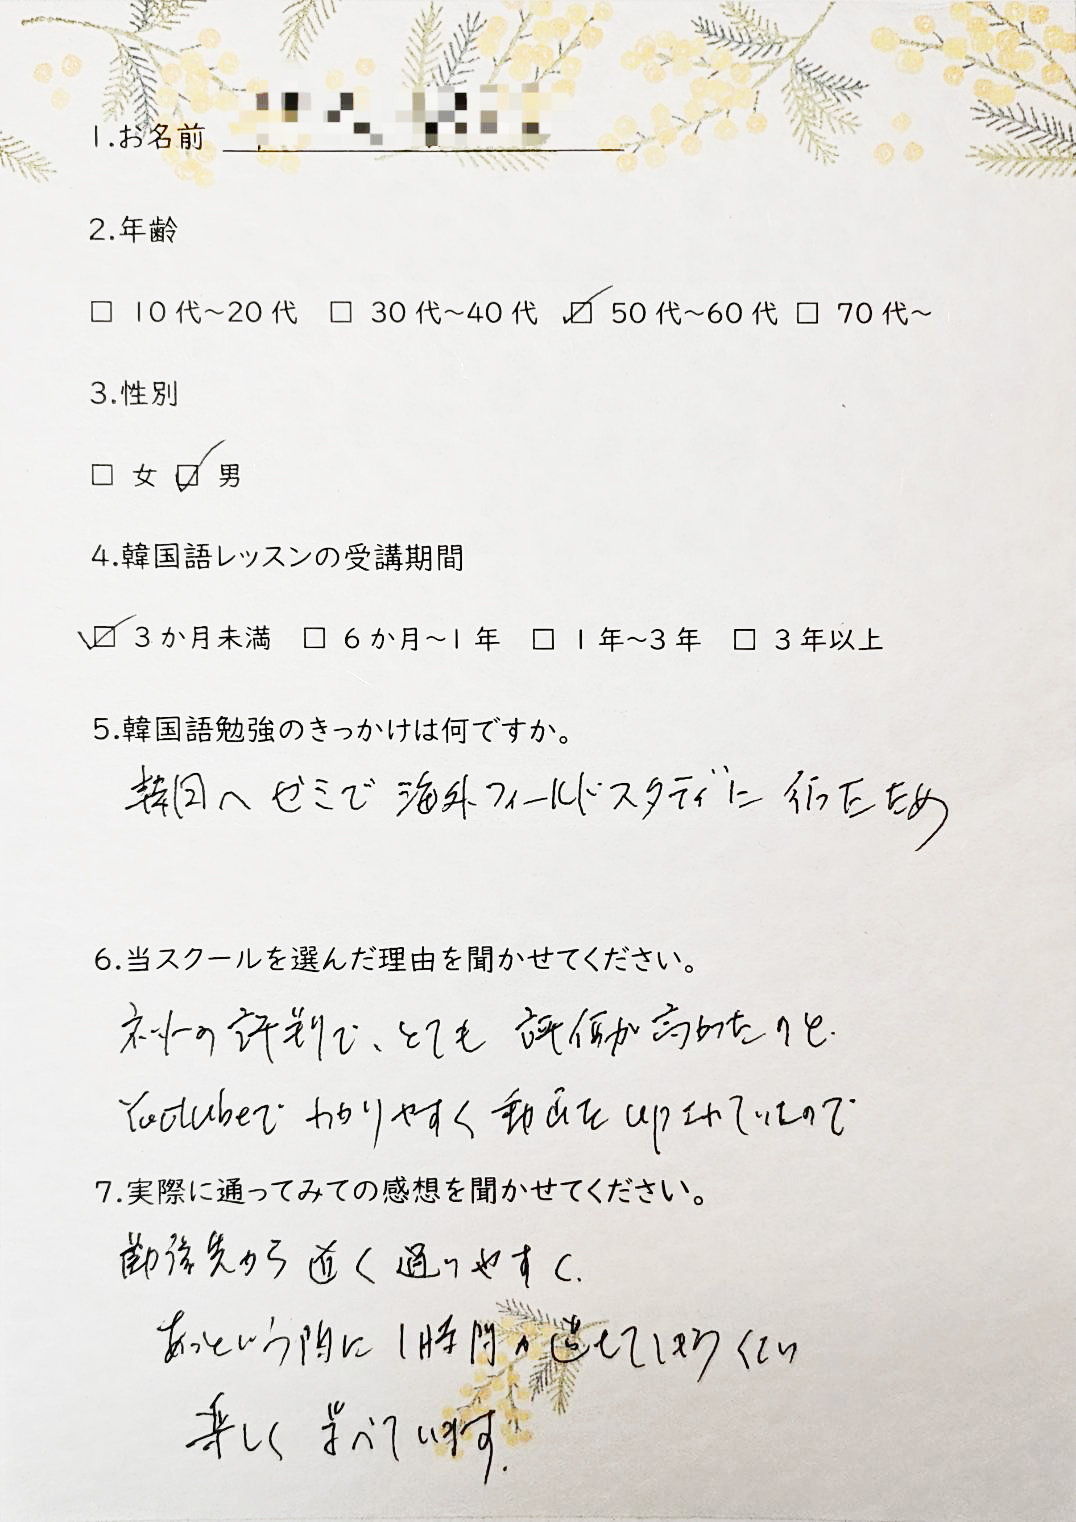 1.お名前
2.年齢
□ 10代～20代 □ 30代～40代 ☑ 50代～60代 □ 70代～
3.性別
□ 女 ☑ 男
4.韓国語レッスンの受講期間
☑ 3か月未満 □ 6か月～1年 □ 1年～3年 □ 3年以上
5.韓国語勉強のきっかけは何ですか。
韓国へ ゼミで 海外フィールドスタディに 行ったため
6.当スクールを選んだ理由を聞かせてください。
ネットの 評判で、とても 評価が 高かったのと、
Youtubeで わかりやすく 動画を upされていたので
7.実際に通ってみての感想を聞かせてください。
勤務先から 近く 通いやすく、
あっという間に 1時間が 過ぎてしまうくらい
楽しく 学べています。